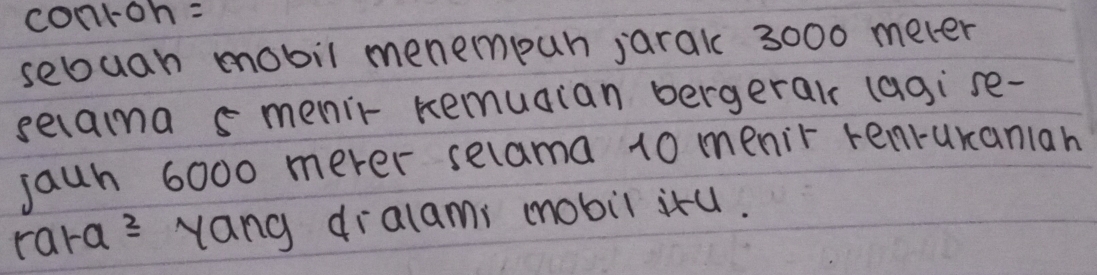 contoh =
sebuah mobil menempuh jarak 3000 meter
selama 5 menit kemudian bergerak lagi se-
jauh 6000 meter selama 10 menit tentukanlah
rata² yang dialami mobil itu.